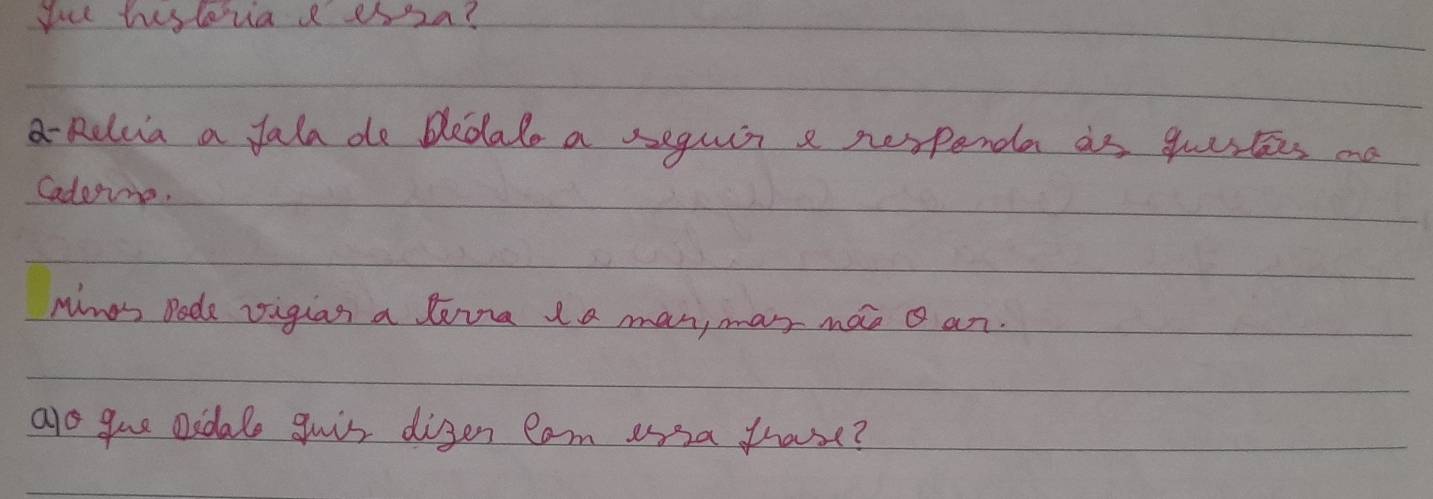 que história é essa?
2-Releia a fala de Dédalo a seguir e responda às questões no
caderno.
Minos pode vigiar a terra e o mar, mas não o ar.
a) o que Dédalo quis dizer com essa frase?